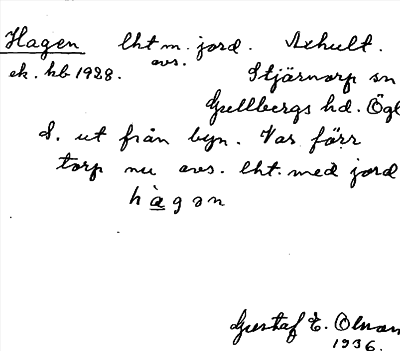 Hagen lht m. jord. Axhult.
avs.
ek. kb 1928. Stjärnorp sn
Gullbergs hd. Ögl
S. ut från byn. Var förr
torp nu avs. lht. med jord
hàgən
Gustaf E. Olsson
1936.